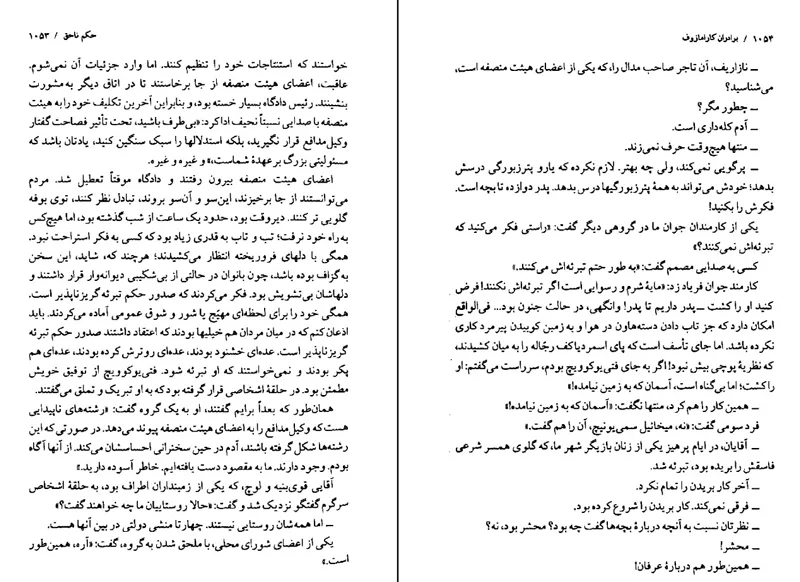 حکم ناحق / ۱۰۵۳
خواستند که استنتاجات خود را تنظیم کنند. اما وارد جزئیات آن نمی‌شوم.
عاقبت، اعضای هیئت منصفه از جا برخاستند تا در اتاق دیگر به مشورت
بنشینند. رئیس دادگاه بسیار خسته بود، و بنابراین آخرین تکلیف خود را به هیئت
منصفه با صدایی نسبتاً نحیف ادا کرد: «بی‌طرف باشید، تحت تأثیر فصاحت گفتار
وکیل‌مدافع قرار نگیرید، بلکه استدلالها را سبک سنگین کنید، یادتان باشد که
مسئولیتی بزرگ بر عهدهٔ شماست،» و غیره و غیره.
اعضای هیئت منصفه بیرون رفتند و دادگاه موقتاً تعطیل شد. مردم
می‌توانستند از جا برخیزند، این‌سو و آن‌سو بروند، تبادل نظر کنند، توی بوفه
گلویی تر کنند. دیروقت بود، حدود یک ساعت از شب گذشته بود، اما هیچ‌کس
به راه خود نرفت؛ تب و تاب به قدری زیاد بود که کسی به فکر استراحت نبود.
همگی با دلهای فروریخته انتظار می‌کشیدند؛ هرچند که، شاید، این سخن
به گزاف بوده باشد، چون بانوان در حالتی از بی‌شکیبی دیوانه‌وار قرار داشتند و
دلهاشان بی‌تشویش بود. فکر می‌کردند که صدور حکم تبرئه گریزناپذیر است.
همگی خود را برای لحظه‌ای مهیّج پا شور و شوق عمومی آماده می‌کردند. باید
اذعان کنم که در میان مردان هم خیلیها بودند که اعتقاد داشتند صدور حکم تبرئه
گریزناپذیر است. عده‌ای خشنود بودند، عده‌ای روترش کرده بودند، عده‌ای هم
پکر بودند و نمی‌خواستند که او تبرئه شود. فتی‌یوکوویچ از توفیق خویش
مطمئن بود. در حلقهٔ اشخاصی قرار گرفته بود که به او تبریک و تملق می‌گفتند.
همان‌طور که بعداً برایم گفتند، او به یک گروه گفت: «رشته‌های ناپیدایی
هست که وکیل‌مدافع را به اعضای هیئت منصفه پیوند می‌دهد. در صورتی که این
رشته‌ها شکل گرفته باشند، آدم در حین سخنرانی احساسشان می‌کند. از آنها آگاه
بودم. وجود دارند. ما به مقصود دست یافته‌ایم. خاطر آسوده دارید.»
آقایی قوی‌بنیه و لوچ، که یکی از زمینداران اطراف بود، به حلقهٔ اشخاص
سرگرم گفتگو نزدیک شد و گفت: «حالا روستاییان ما چه خواهند گفت؟»
ــ اما همه‌شان روستایی نیستند. چهار تا منشی دولتی در بین آنها هست.
یکی از اعضای شورای محلی، با ملحق شدن به گروه، گفت: «آره، همین‌طور
است.»
۱۰۵۴ / برادران کارامازوف
ــ نازاریف، آن تاجر صاحب مدال را، که یکی از اعضای هیئت منصفه است،
می‌شناسید؟
ــ چطور مگر؟
ــ آدم کله‌داری است.
ــ منتها هیچ‌وقت حرف نمی‌زند.
ــ پرگویی نمی‌کند، ولی چه بهتر. لازم نکرده که یارو پترزبورگی درسش
بدهد؛ خودش می‌تواند به همهٔ پترزبورگیها درس بدهد. پدر دوازده تا بچه است.
فکرش را بکنید!
یکی از کارمندان جوان ما در گروهی دیگر گفت: «راستی فکر می‌کنید که
تبرئه‌اش نمی‌کنند؟»
کسی به صدایی مصمم گفت: «به طور حتم تبرئه‌اش می‌کنند.»
کارمند جوان فریاد زد: «مایهٔ شرم و رسوایی است اگر تبرئه‌اش نکنند! فرض
کنید او را کشت ــ پدر داریم تا پدر! وانگهی، در حالت جنون بود... فی‌الواقع
امکان دارد که جز تاب دادن دسته‌هاون در هوا و به زمین کوبیدن پیرمرد کاری
نکرده باشد. اما جای تأسف است که پای اسمردیاکف رجّاله را به میان کشیدند،
که نظریهٔ پوچی بیش نبود! اگر به جای فتی‌یوکوویچ بودم، سرراست می‌گفتم: او
را کشت؛ اما بی‌گناه است، آسمان که به زمین نیامده!»
ــ همین کار را هم کرد، منتها نگفت: «آسمان که به زمین نیامده!»
فرد سومی گفت: «نه، میخائیل سمی‌یونیچ، آن را هم گفت.»
ــ آقایان، در ایام پرهیز یکی از زنان بازیگر شهر ما، که گلوی همسر شرعی
فاسقش را بریده بود، تبرئه شد.
ــ آخر کار بریدن را تمام نکرد.
ــ فرقی نمی‌کند. کار بریدن را شروع کرده بود.
ــ نظرتان نسبت به آنچه دربارهٔ بچه‌ها گفت چه بود؟ محشر بود، نه؟
ــ محشر!
ــ همین‌طور هم دربارهٔ عرفان!